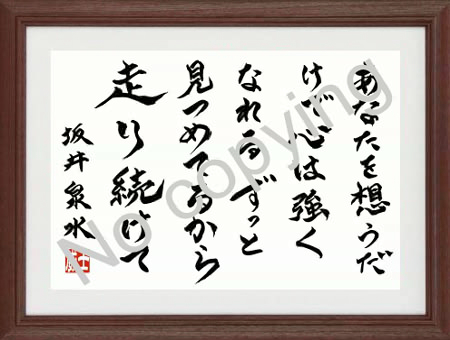 あなたを想うだ
けで心は強く
なれるずっと
見つめてるから
走り続けて
坂井泉水
No copying